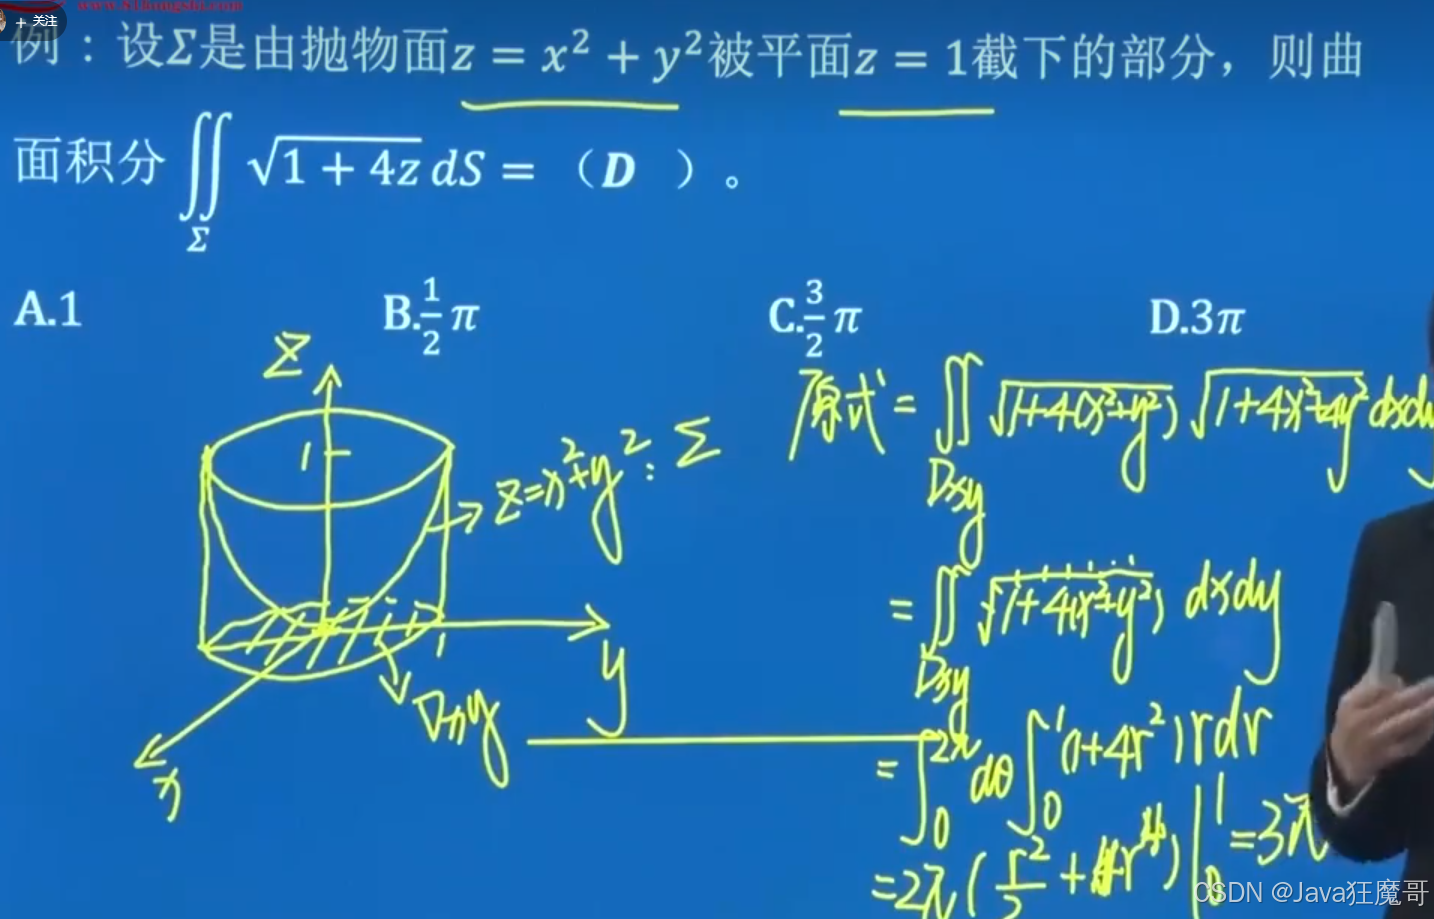 + 关注
例：设Σ是由抛物面z = x² + y²被平面z = 1截下的部分，则曲
面积分∬_Σ √(1 + 4z) dS = （D ）。
A.1 B.1/2 π C.3/2 π D.3π
z
1
z=x²+y² : Σ
1
y
Dxy
x
原式 = ∬_Dxy √(1+4(x²+y²)) √(1+4x²+4y²) dxdy
= ∬_Dxy √(1+4(x²+y²)) dxdy
= ∫_0^2π dθ ∫_0^1 (1+4r²) r dr
=2π ( r²/2 + r⁴ ) |_0^1 =3π
CSDN @Java狂魔哥